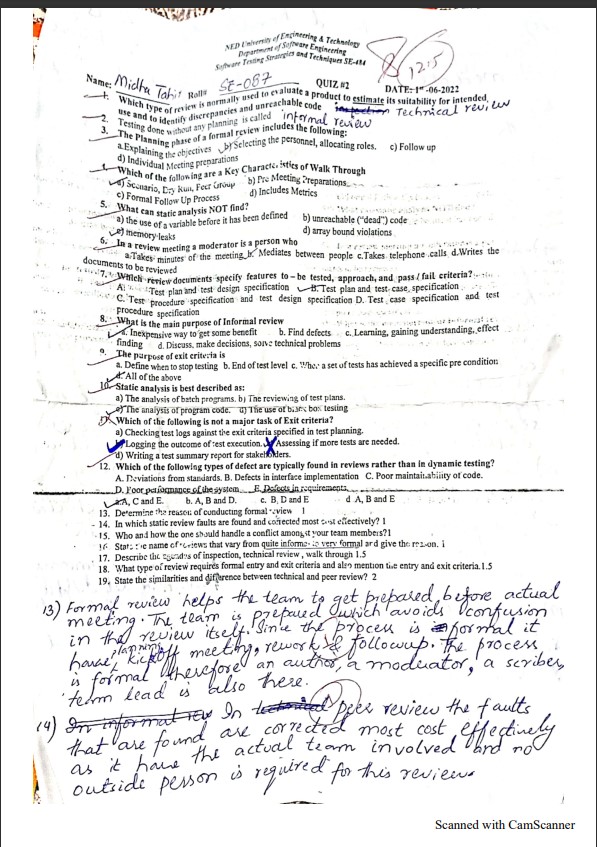 NED University of Engineering & Technology
Department of Software Engineering
Software Testing Strategies and Techniques SE-484
8
12.5
Name: Midha Tahir Roll# SE-087 QUIZ #2 DATE: 1st -06-2022
1. Which type of review is normally used to evaluate a product to estimate its suitability for intended,
use and to identify discrepancies and unreachable code Technical review
2. Testing done without any planning is called informal review
3. The Planning phase of a formal review includes the following:
a.Explaining the objectives b) Selecting the personnel, allocating roles. c) Follow up
d) Individual Meeting preparations
4. Which of the following are a Key Characteristics of Walk Through
a) Scenario, Dry Run, Peer Group b) Pre Meeting Preparations
c) Formal Follow Up Process d) Includes Metrics
5. What can static analysis NOT find?
a) the use of a variable before it has been defined b) unreachable ("dead") code
c) memory leaks d) array bound violations
6. In a review meeting a moderator is a person who
a.Takes minutes of the meeting b. Mediates between people c.Takes telephone calls d.Writes the
documents to be reviewed
7. Which review documents specify features to be tested, approach, and pass / fail criteria?
A. Test plan and test design specification B. Test plan and test case, specification
C. Test procedure specification and test design specification D. Test case specification and test
procedure specification
8. What is the main purpose of Informal review
a. Inexpensive way to get some benefit b. Find defects c. Learning, gaining understanding, effect
finding d. Discuss, make decisions, solve technical problems
9. The purpose of exit criteria is
a. Define when to stop testing b. End of test level c. When a set of tests has achieved a specific pre condition
d. All of the above
10. Static analysis is best described as:
a) The analysis of batch programs. b) The reviewing of test plans.
c) The analysis of program code. d) The use of black box testing
Which of the following is not a major task of Exit criteria?
a) Checking test logs against the exit criteria specified in test planning.
b) Logging the outcome of test execution. Assessing if more tests are needed.
d) Writing a test summary report for stakeholders.
12. Which of the following types of defect are typically found in reviews rather than in dynamic testing?
A. Deviations from standards. B. Defects in interface implementation C. Poor maintainability of code.
D. Poor performance of the system E. Defects in requirements
a. A, C and E. b. A, B and D. c. B, D and E d A, B and E
13. Determine the reason of conducting formal review 1
14. In which static review faults are found and corrected most cost effectively? 1
15. Who and how the one should handle a conflict amongst your team members? 1
16. State the name of reviews that vary from quite informal to very formal and give the reason. 1
17. Describe the agendas of inspection, technical review, walk through 1.5
18. What type of review requires formal entry and exit criteria and also mention the entry and exit criteria. 1.5
19. State the similarities and difference between technical and peer review? 2
13) Formal review helps the team to get prepared before actual
meeting. The team is prepared which avoids confusion
in the review itself. Since the process is formal it
have planning, kickoff meeting, rework & followup. The process
is formal therefore an author, a moderator, a scribes,
team lead is also there.
14) In informal rev In technical peer review the faults
that are found are corrected most cost effectively
as it have the actual team involved and no
outside person is required for this review.
Scanned with CamScanner